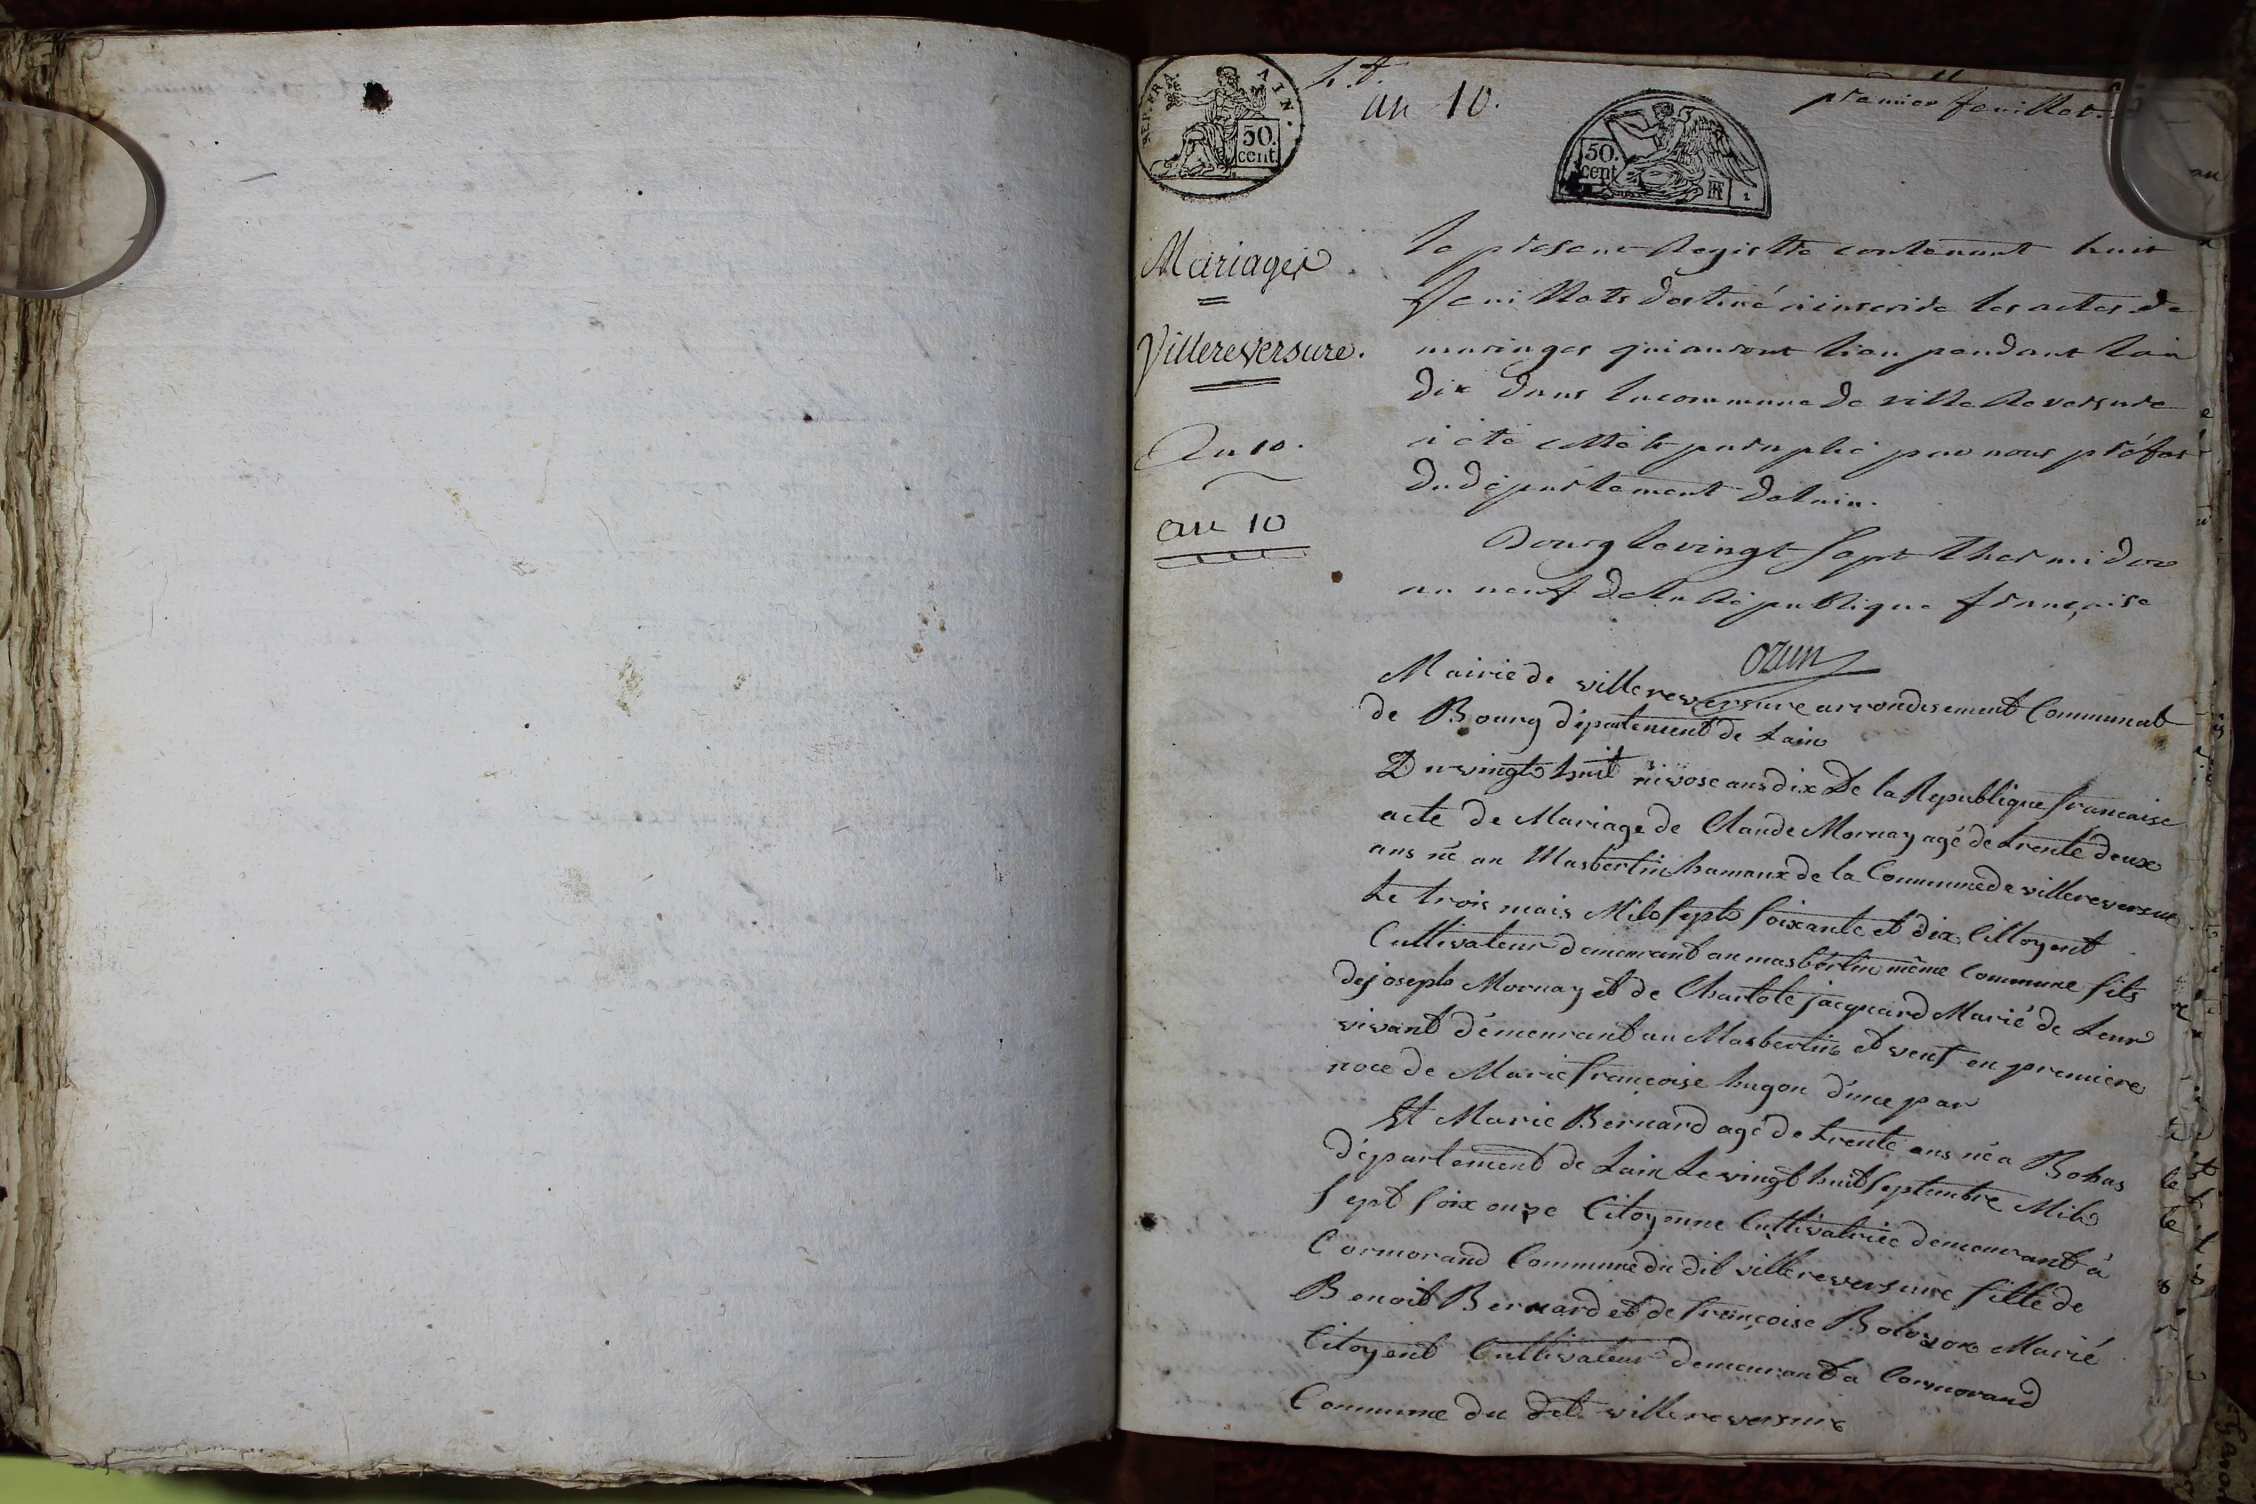 REP. FRA. AIN.
50.
cent
an 10.
premier feuillet.
50.
cent
Mariages
Villereversure.
An 10.
an 10
le présent Registre contenant huit
feuillets destiné a inscrire les actes de
mariages qui auront lieu pendant l'an
dix dans la commune de ville Reversure
a été cotté et paraphé par nous préfet
du département de l'ain.
Bourg le vingt sept thermidor
an neuf de la République française
Ozun
Mairie de villereversure arrondisement Communal
de Bourg département de Lain
Du vingt huit nivose ans dix De la Republique francaise
acte de Mariage de Claude Mornay agé de trente deux
ans né au Masbertin hamaux de la Commune de villereversure
Le trois mais Mil Sept Soixante et dix Cittoyent
Cultivateur demeurant au masbertin même Commune fils
de joseph Mornay et de Charlote jacquard Marié de Leur
vivant démeurant au Masbertin et veuf en premiere
noce de Marie françoise hugon d'une par
Et Marie Bernard agé de trente ans né a Bohas
département de Lain Le vingt huit Septembre Mil
Sept Soix onze Citoyenne Cultivatrice demeurant à
Cormorand Commune du dit villereversure fille de
Benoit Bernard et de françoise Bolozon Marié
Citoyent Cultivateur demeurant a Cormorand
Commune du dit villereversure